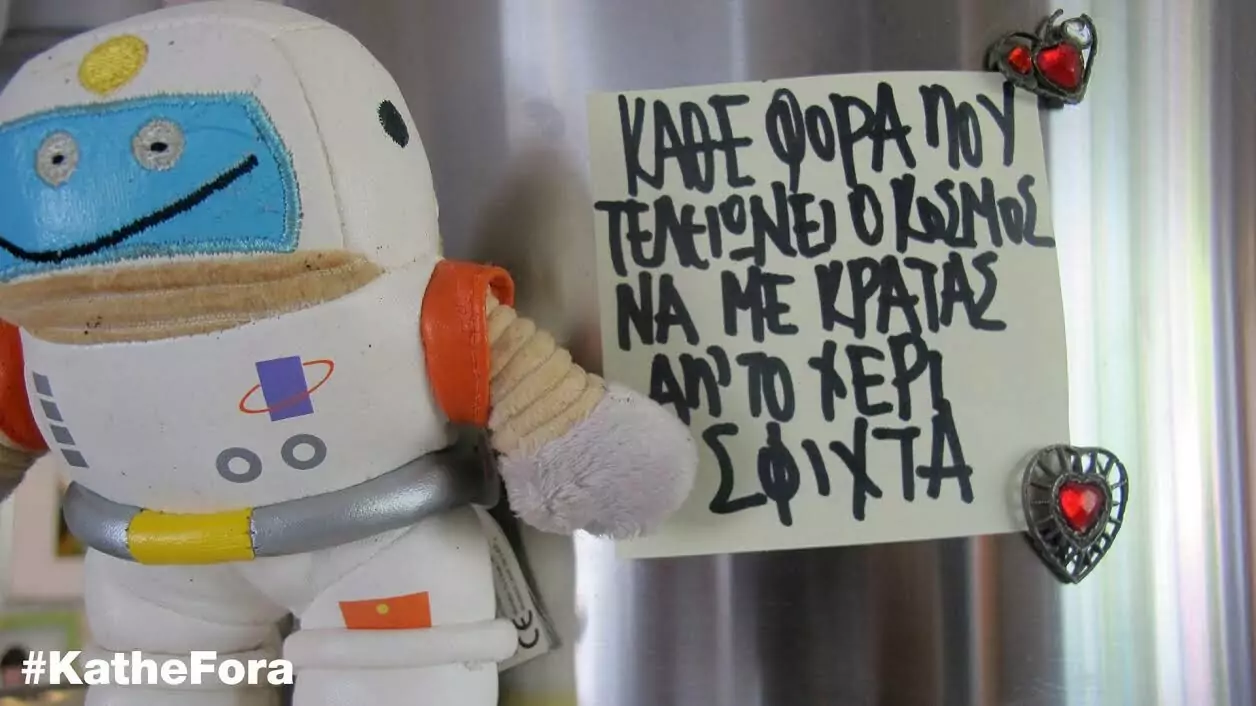 ΚΑΘΕ ΦΟΡΑ ΠΟΥ
ΤΕΛΕΙΩΝΕΙ Ο ΚΟΣΜΟΣ
ΝΑ ΜΕ ΚΡΑΤΑΣ
ΑΠ' ΤΟ ΧΕΡΙ
ΣΦΙΧΤΑ
CE
#KatheFora